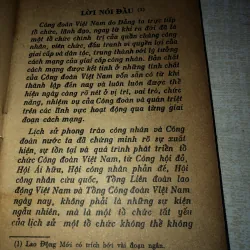 LỜI NÓI ĐẦU (1)
Công đoàn Việt Nam do Đảng ta trực tiếp
tổ chức, lãnh đạo, ngay từ khi ra đời đã là
một tổ chức chính trị của quần chúng công
nhân, viên chức, đấu tranh vì quyền lợi của
giai cấp và dân tộc, trung thành với lý tưởng
cách mạng của giai cấp công nhân. Bản chất
cách mạng được kết tinh ở những tính chất
của Công đoàn Việt Nam vốn sẵn có từ khi
thành lập đến nay và luôn luôn được thể
hiện ngày càng rõ nét ở vị trí, vai trò, chức
năng, nhiệm vụ của Công đoàn và quán triệt
trên các lĩnh vực hoạt động qua từng giai
đoạn cách mạng.
Lịch sử phong trào công nhân và Công
đoàn nước ta đã chứng minh rõ sự xuất
hiện, sự tồn tại và quá trình phát triển tổ
chức Công đoàn Việt Nam, từ Công hội đỏ,
Hội Ái hữu, Hội công nhân phản đế, Hội
công nhân cứu quốc, Tổng Liên đoàn lao
động Việt Nam và Tổng Công đoàn Việt Nam
ngày nay, không phải là những sự kiện
ngẫu nhiên, mà là một tổ chức tất yếu
của lịch sử một tổ chức không thể không
(1) Lao Động Mới có trích bớt vài đoạn ngắn.